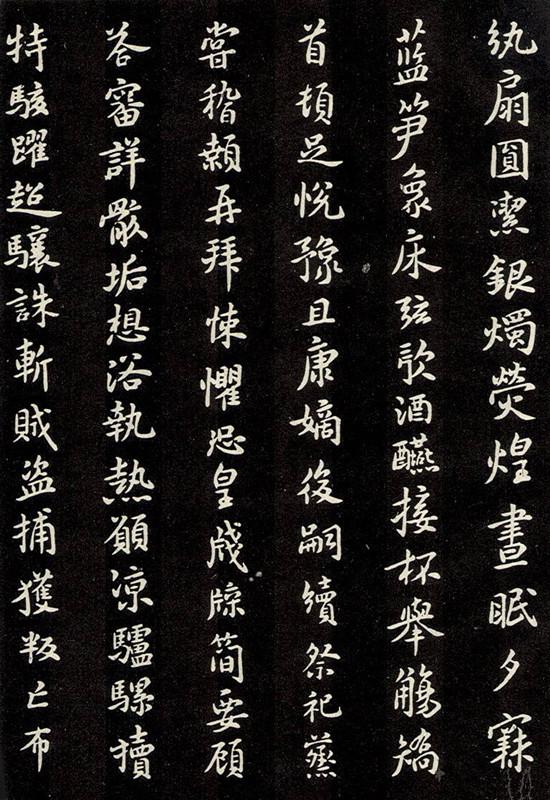 紈扇圓潔銀燭熒煌晝眠夕寐
藍笋象床弦歌酒醼接杯舉觴矯
首頓足悅豫且康嫡後嗣續祭祀蒸
嘗稽顙再拜悚懼恐皇牋牒簡要顧
答審詳骸垢想浴執熱願涼驢騾犢
特駭躍超驤誅斬賊盜捕獲叛亡布